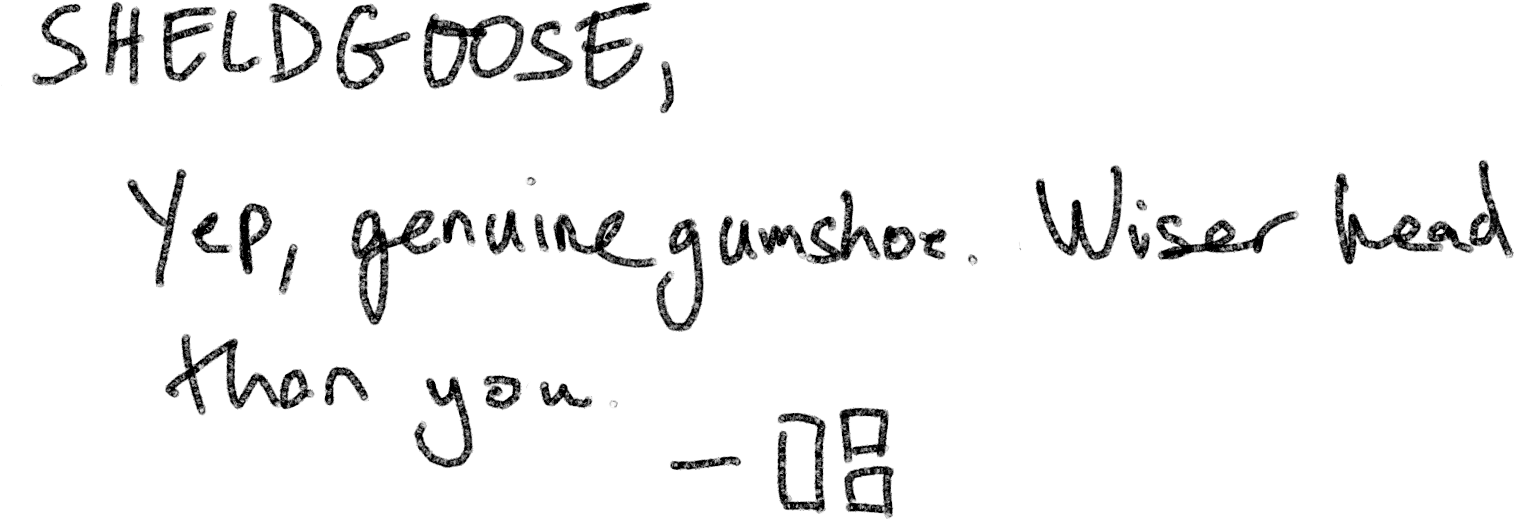 SHELDGOOSE,
Yep, genuine gumshoe. Wiser head
than you.